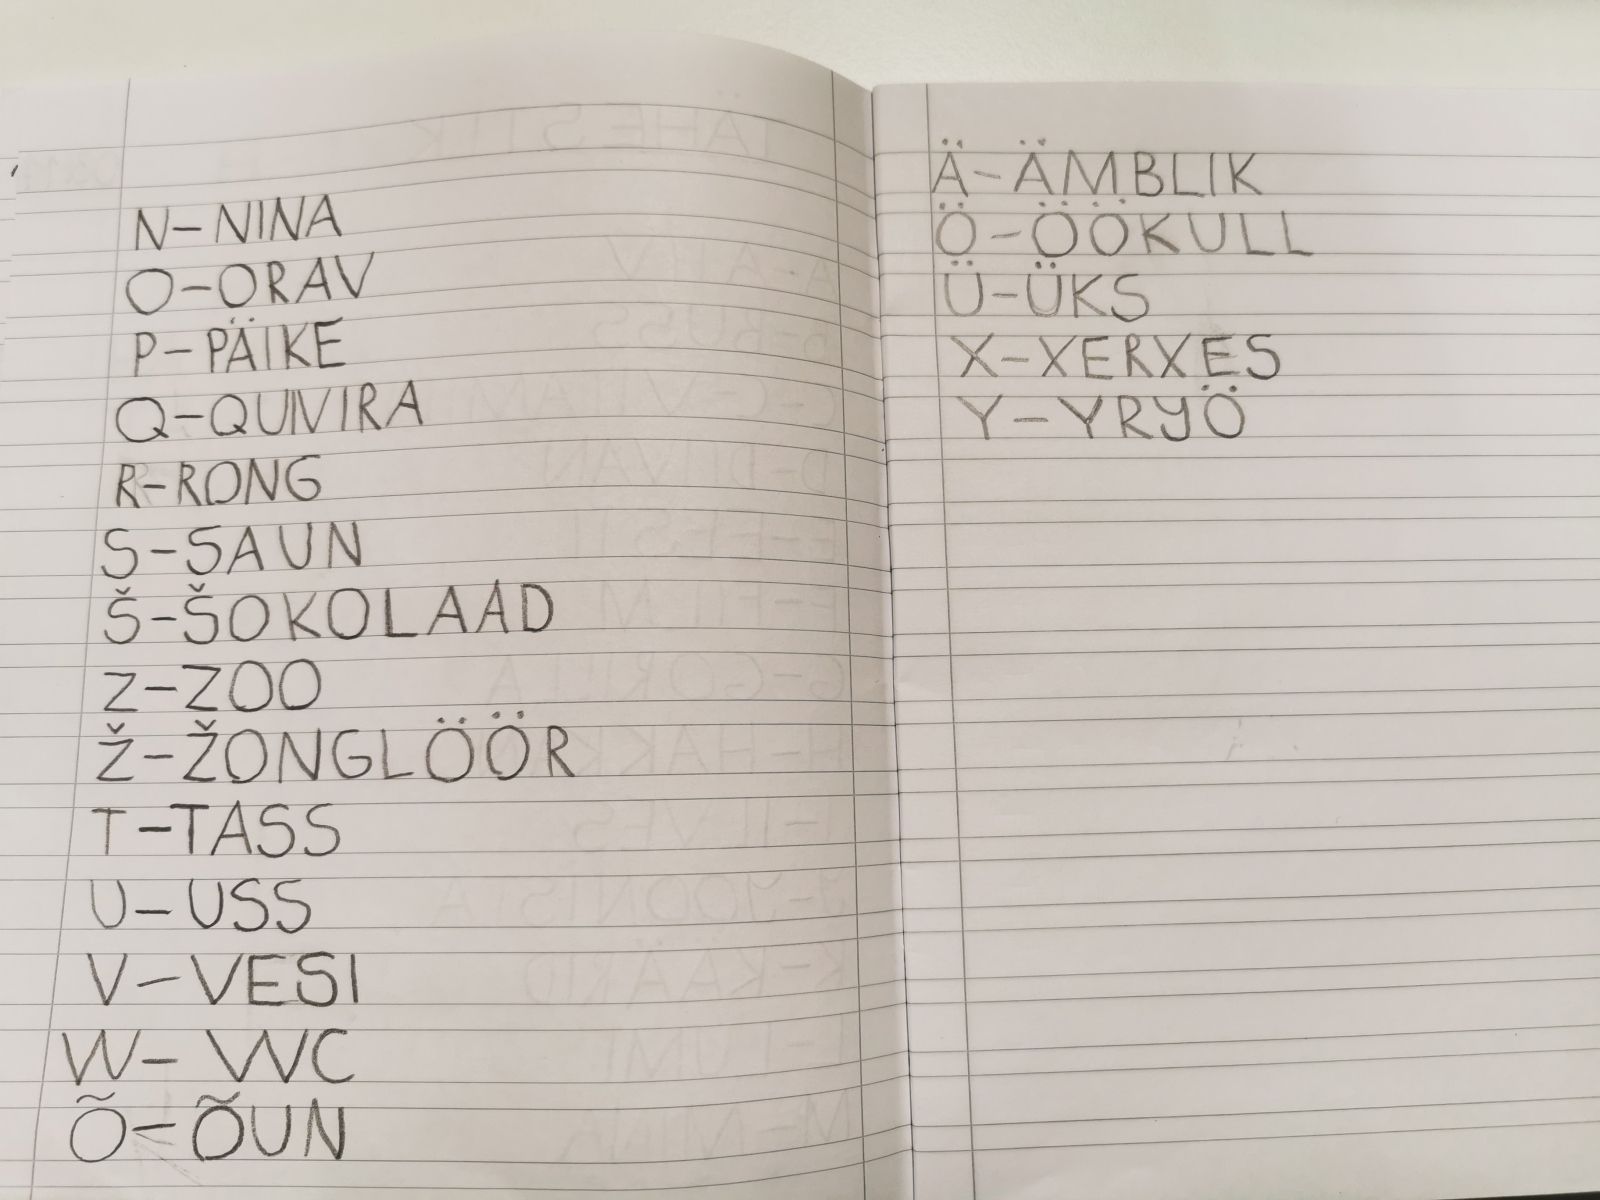 N-NINA
O-ORAV
P-PÄIKE
Q-QUIVIRA
R-RONG
S-SAUN
Š-ŠOKOLAAD
Z-ZOO
Ž-ŽONGLÖÖR
T-TASS
U-USS
V-VESI
W-WC
Õ-ÕUN
Ä-ÄMBLIK
Ö-ÖÖKULL
Ü-ÜKS
X-XERXES
Y-YRYÖ